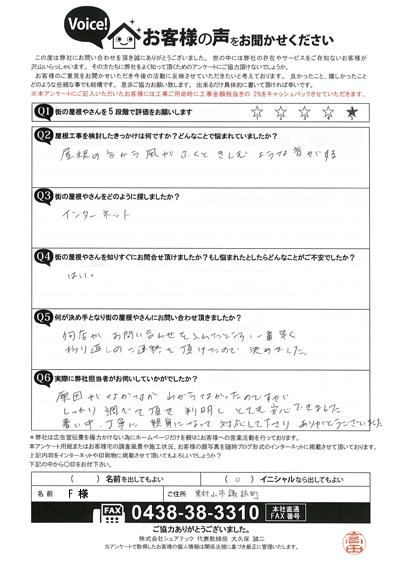 Voice!
お客様の声をお聞かせください
この度は弊社にお問い合わせを頂き誠にありがとうございました。世の中には弊社の存在やサービスをご存知ないお客様が
沢山いらっしゃいます。その方たちに弊社をよく知って頂くためのアンケートにご協力頂けないでしょうか。
お客様のご意見をお聞かせいただき今後の活動に反映させていただきたいと考えております。良かったこと、嬉しかったこと
どのような些細な事でも結構です。是非ご協力お願い致します。出来るだけ具体的に書いて頂ければ幸いです。
※本アンケートにご記入いただいたお客様には工事ご用命時に工事金額税抜きの 2%をキャッシュバックさせていただきます。
Q1 街の屋根やさんを5段階で評価をお願いします ☆ ☆ ☆ ☆ ★
1 2 3 4 5
Q2 屋根工事を検討したきっかけは何ですか?どんなことで悩まれていましたか?
屋根の方から風がふくときしむような音がする
Q3 街の屋根やさんをどのように探しましたか?
インターネット
Q4 街の屋根やさんを知りすぐにお問合せ頂けましたか?もし悩まれたとしたらどんなことがご不安でしたか?
はい。
Q5 何が決め手となり街の屋根やさんにお問い合わせ頂きましたか?
何店かお問い合わせを入れたところ、一番早く
折り返しのご連絡を頂けたので決めました。
Q6 実際に弊社担当者がお伺いしていかがでしたか?
原因がなかなかわからなかったのですが
しっかり調べて頂き判明しとても安心できました
暑い中、丁寧に親身になって対応して下さりありがとうございました
※弊社は広告宣伝費を極力かけない為にホームページだけを頼りにお客様への営業活動を行っております。
本アンケート用紙またはお客様宅の調査風景や施工状況、お客様の顔写真を随時ブログ形式のインターネットに掲載させて頂いております。
上記内容をインターネットや印刷物に掲載させて頂いてもよろしいでしょうか?
下記の中から〇印をお付下さい。
( ) 名前を出してもよい ( ○ ) イニシャルなら出してもよい
名前 F 様 ご住所 東村山市諏訪町
FAX 0438-38-3310 本社直通 FAX番号
ご協力ありがとうございました
株式会社シェアテック 代表取締役 大久保 誠二
当アンケートで取得したお客様の個人情報は関係法規に基づき厳正に管理いたします。